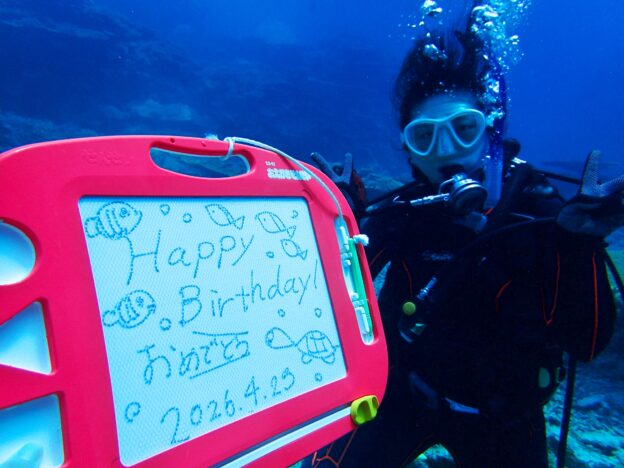 Happy
Birthday!
おめでとう
2026.4.29